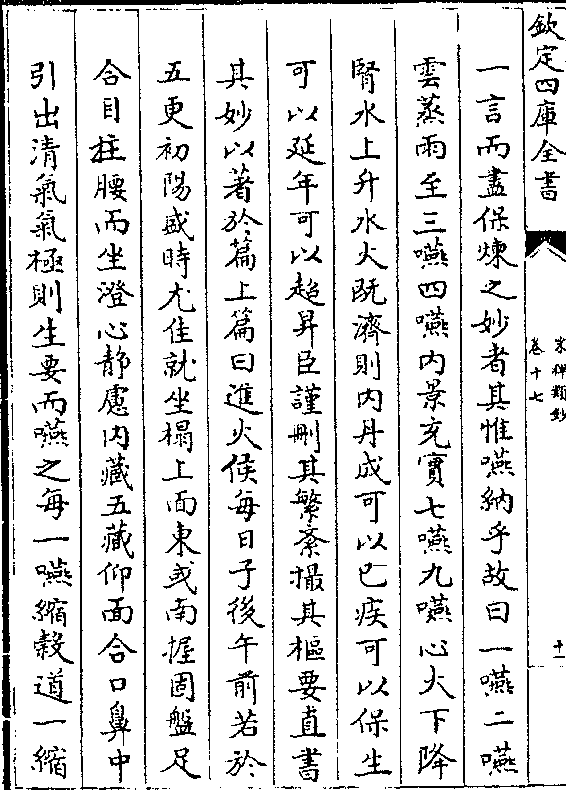 欽定四庫全書
宋稗類鈔
卷十七
十一
一言而盡保煉之妙者其惟嚥納乎故曰一嚥二嚥
雲蒸雨至三嚥四嚥内景充實七嚥九嚥心火下降
腎水上升水火既濟則内丹成可以已疾可以保生
可以延年可以超昇臣謹刪其繁紊撮其樞要直書
其妙以著於篇上篇曰進火候每日子後午前若於
五更初陽盛時尤佳就坐榻上面東或南握固盤足
合目拄腰而坐澄心静慮内藏五藏仰面合口鼻中
引出清氣氣極則生要而嚥之每一嚥縮榖道一縮